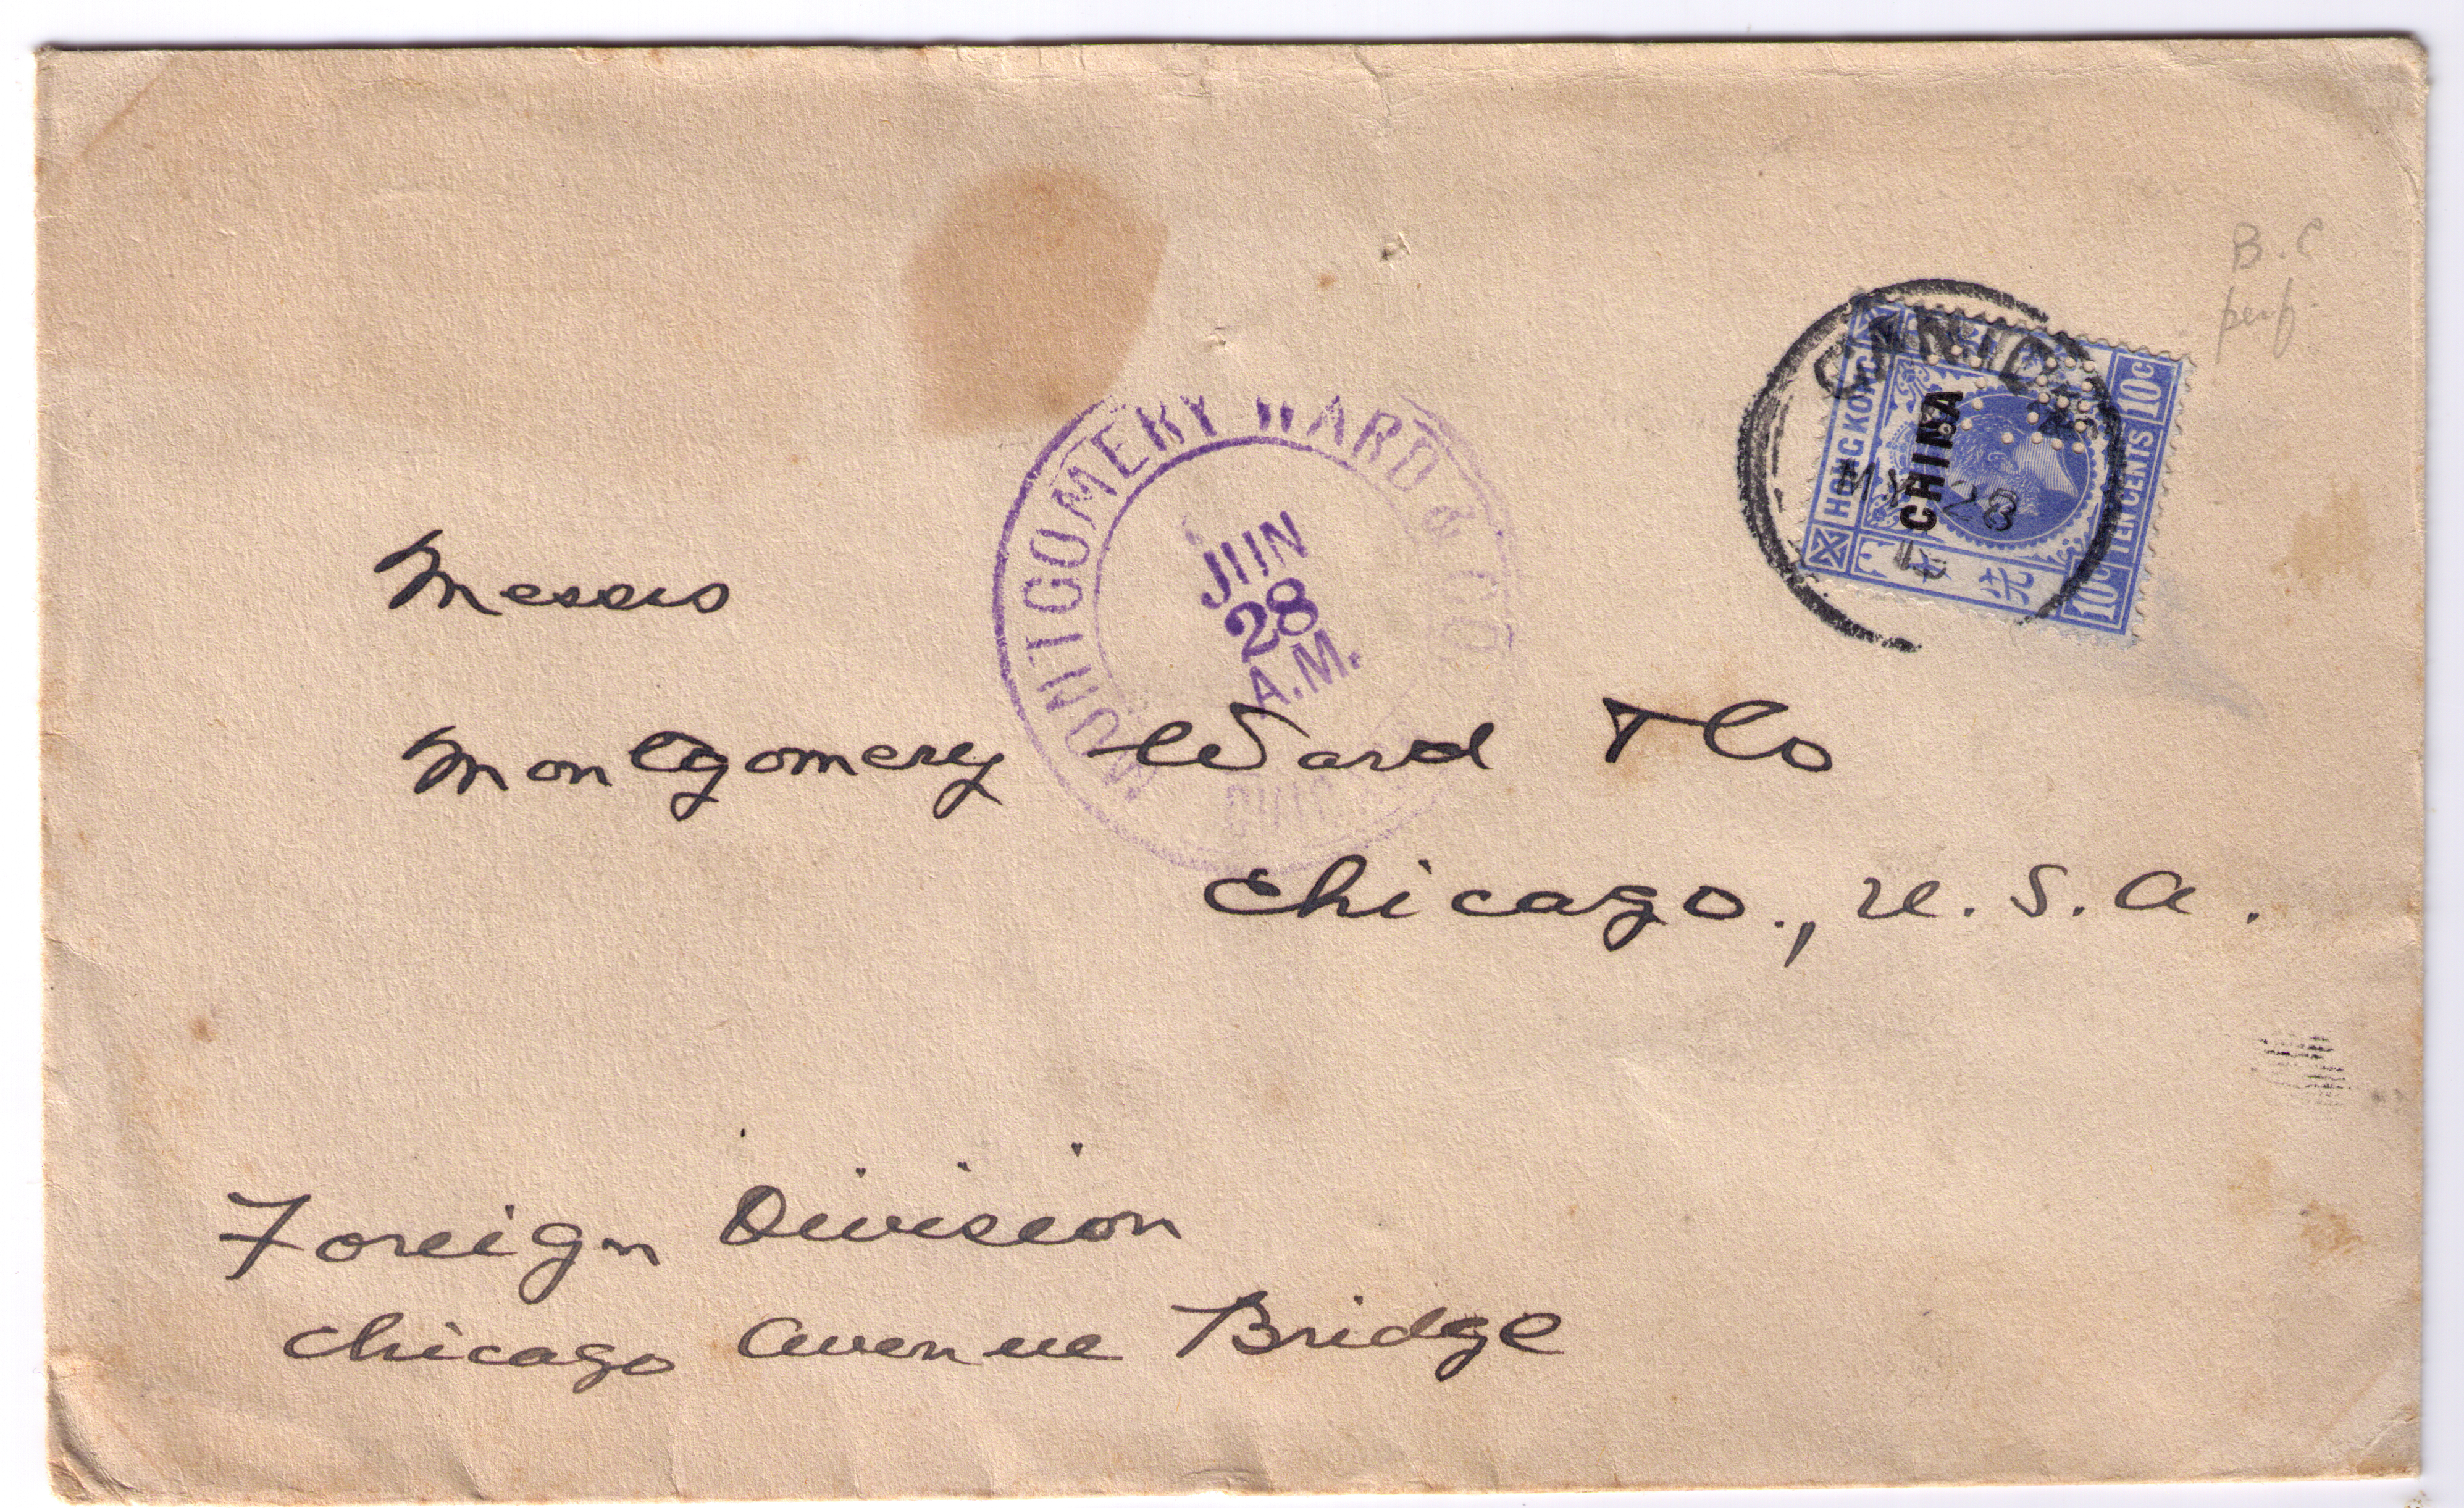 B. C
perf
CANTON
HONG KONG
CHINA
10c
TEN CENTS
10c
MY 28
MONTGOMERY WARD & CO.
JUN
28
A.M.
Messrs
Montgomery Ward & Co
Chicago., U. S. A.
Foreign Division
Chicago Avenue Bridge